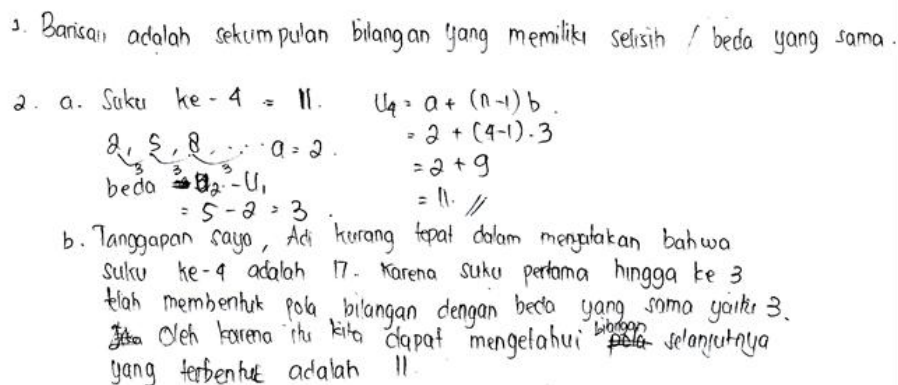 1. Barisan adalah sekumpulan bilangan yang memiliki selisih / beda yang sama.
2. a. Suku ke-4 = 11.
2, 5, 8, .... a = 2.
3 3 3
beda U2 - U1
= 5 - 2 = 3.
U4 = a + (n-1) b.
= 2 + (4-1) . 3
= 2 + 9
= 11. //
b. Tanggapan saya, Adi kurang tepat dalam mengatakan bahwa
suku ke-4 adalah 17. Karena suku pertama hingga ke 3
telah membentuk pola bilangan dengan beda yang sama yaitu 3.
Oleh karena itu kita dapat mengetahui bilangan selanjutnya
yang terbentuk adalah 11